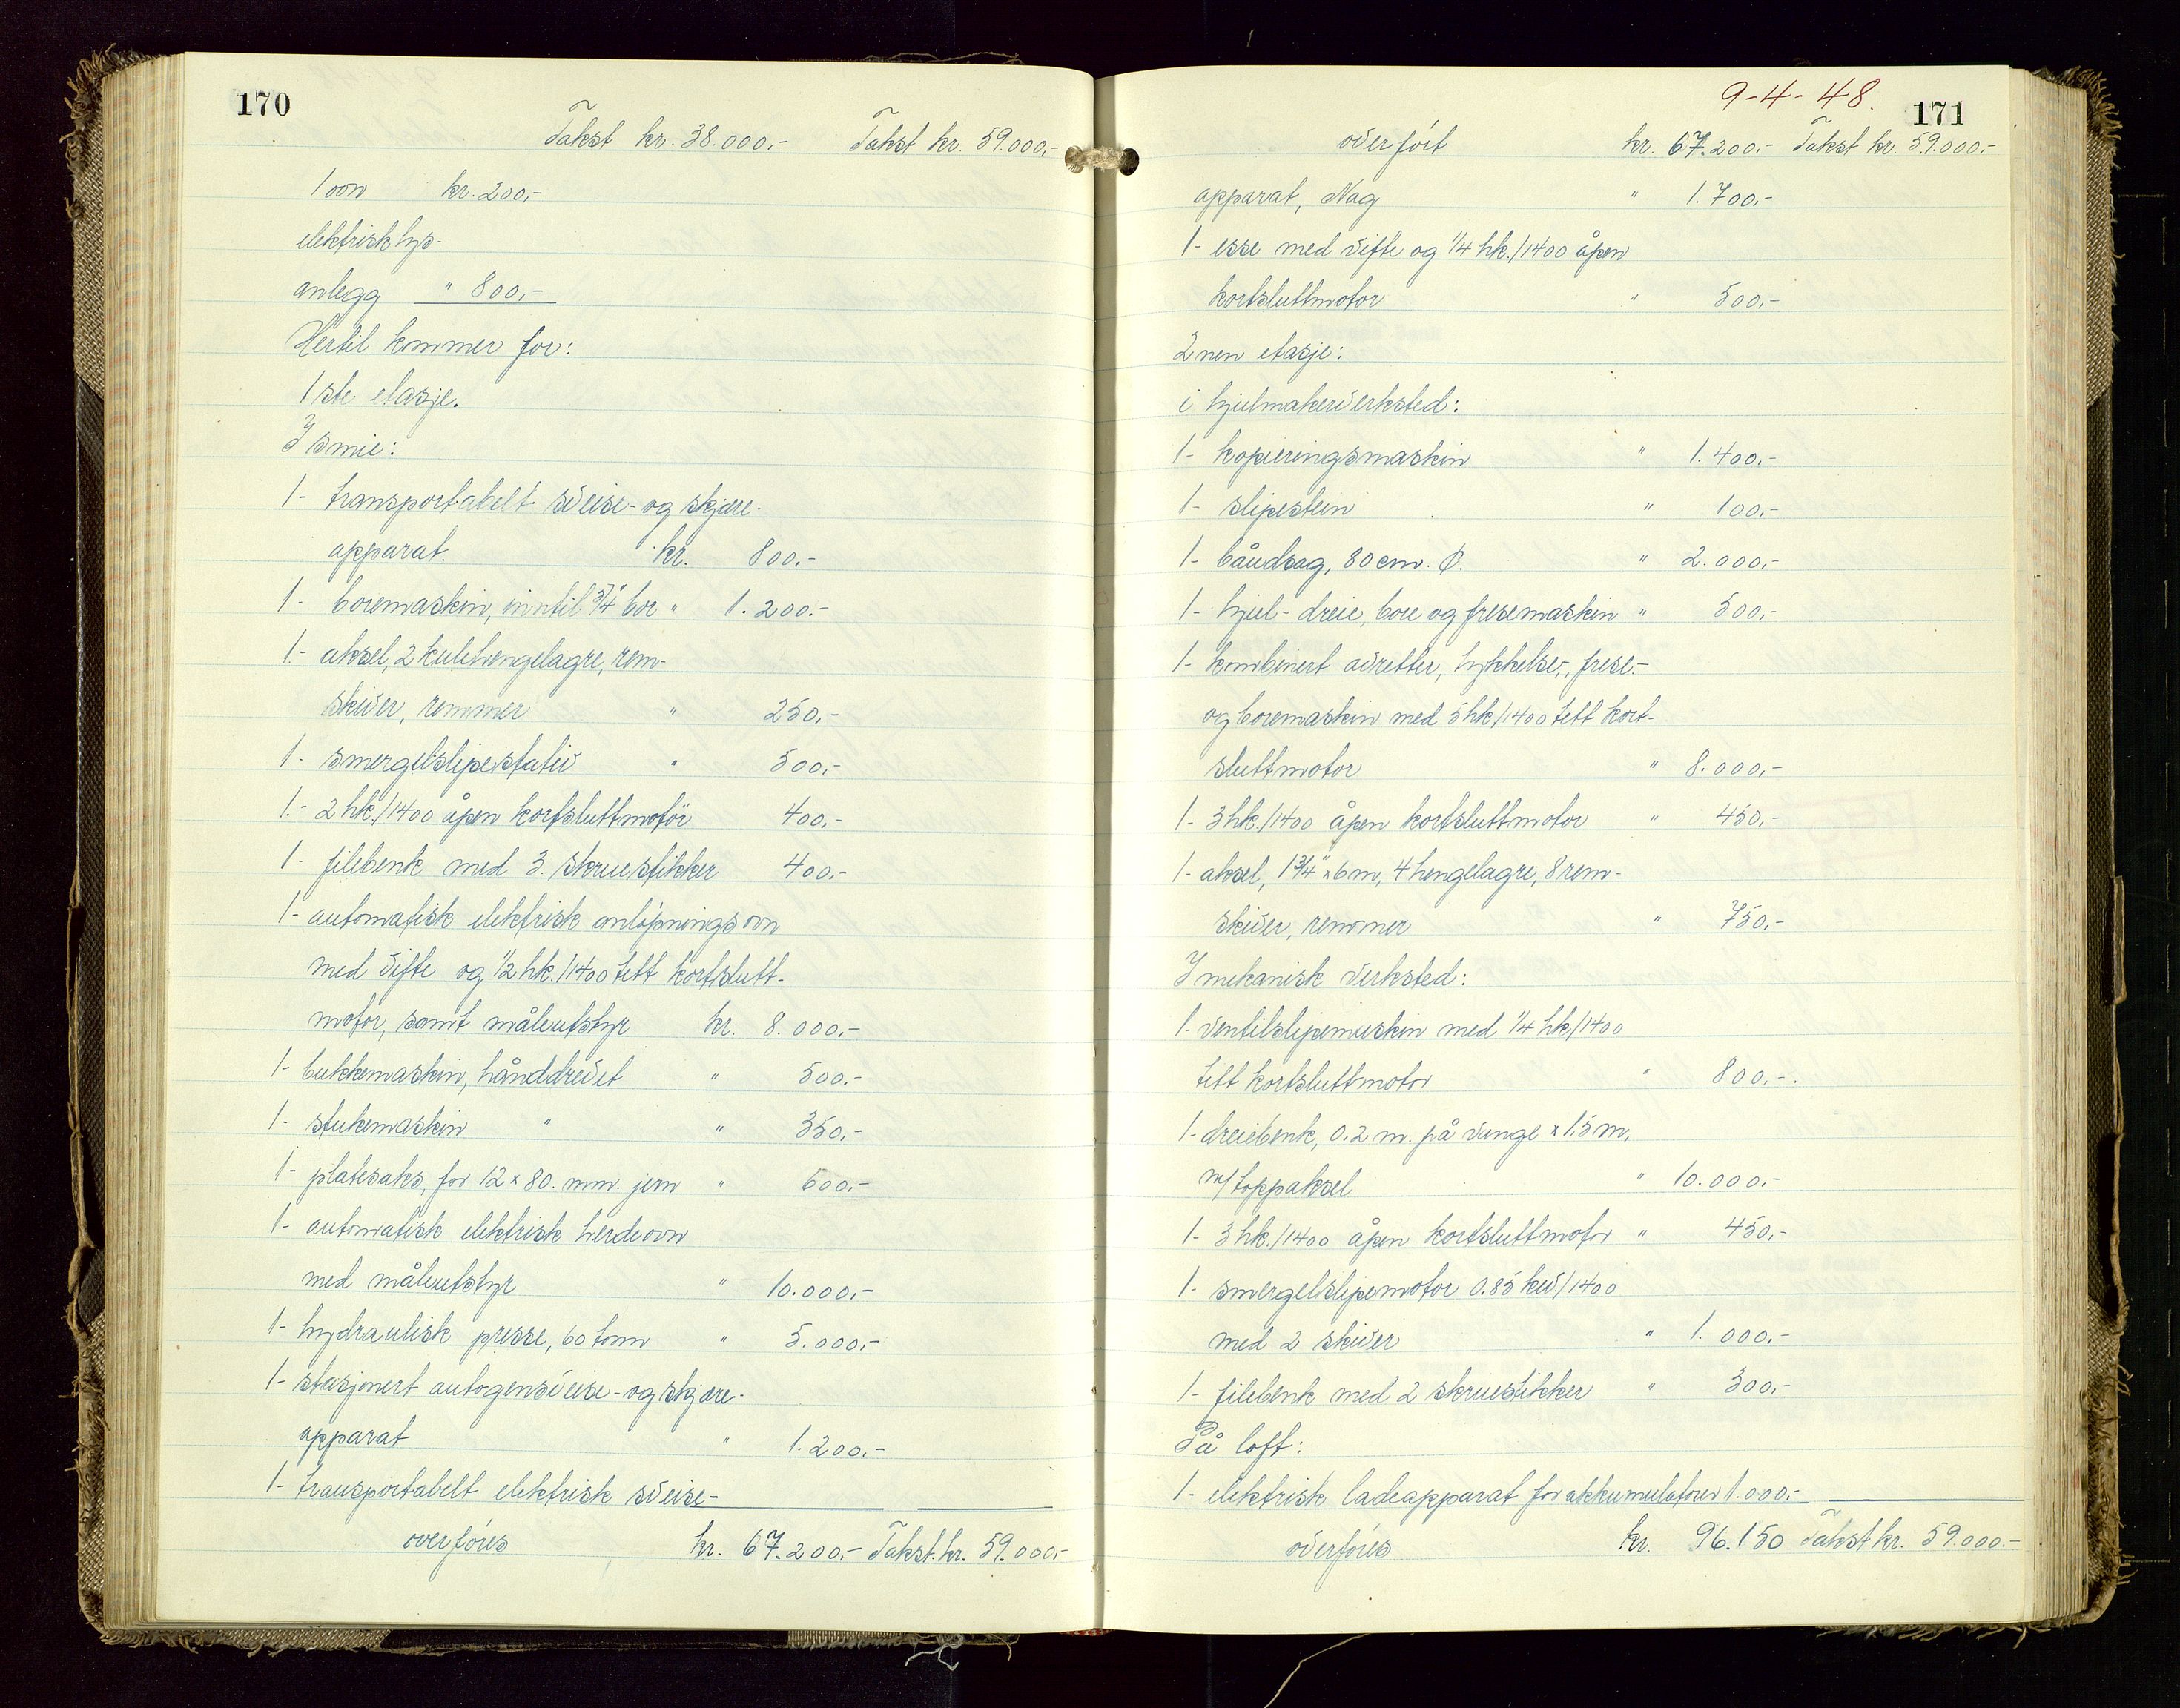 170
Takst kr. 38.000,- Takst kr. 59.000,-
1 ovn kr. 200,-
elektrisk lys-
anlegg " 800,-
Hertil kommer for:
1ste etasje.
I smie:
1- transportabelt sveise- og skjære-
apparat. kr. 800,-
1- boremaskin, inntil 3/4" bor " 1.200.-
1.- aksel, 2 kulehengelagre, rem-
skiver, remmer " 250,-
1- smergelslipestativ " 500,-
1.- 2 hk./1400 åpen kortsluttmotor 400,-
1- filebenk med 3. skruestikker 400,-
1- automatisk elektrisk anløpningsovn
med vifte og 1/2 hk./1400 tett kortslutt-
motor, samt måleutstyr kr. 8.000,-
1- bukkemaskin, hånddrevet " 500.-
1- stukemaskin " " 350,-
1- platesaks, for 12 x 80. mm. jern " 600,-
1- automatisk elektrisk herdeovn
med måleutstyr " 10.000,-
1- hydraulisk presse, 60 tonn " 5.000,-
1- stasjonert autogensveise- og skjære-
apparat " 1.200.-
1- transportabelt elektrisk sveise-
overføres kr. 67.200,- Takst. kr. 59.000,-
9-4-48.
171
overført kr. 67.200.- Takst kr. 59.000,-
apparat, Nag " 1.700,-
1- esse med vifte og 1/4 hk./1400 åpen
kortsluttmotor " 500,-
2nen etasje:
i hjulmakerverksted:
1- kopieringsmaskin " 1.400,-
1- slipestein " 100,-
1- båndsag, 80 cm. Ø. " 2.000,-
1- hjul- dreie, bore og fresemaskin " 500,-
1- kombinert avretter, tykkelse-, frese-
og boremaskin med 5 hk/1400 tett kort-
sluttmotor " 8.000,-
1- 3 hk./1400 åpen kortsluttmotor " 450,-
1- aksel, 1 3/4" x 6 m, 4 hengelagre, 8 rem-
skiver, remmer " 750,-
I mekanisk verksted:
1- ventilslipemaskin med 1/4 hk/1400
tett kortsluttmotor " 800,-.
1- dreiebenk, 0.2 m. på vange x 1.5 m,
m/toppaksel " 10.000,-
1- 3 hk./1400 åpen kortsluttmotor " 450,-
1- smergelslipemotor 0.85 kw./1400
med 2 skiver " 1.000,-
1- filebenk med 2 skruestikker " 300,-
På loft:
1- elektrisk ladeapparat for akkumulatorer 1.000.-
overføres kr. 96.150 Takst kr. 59.000.-